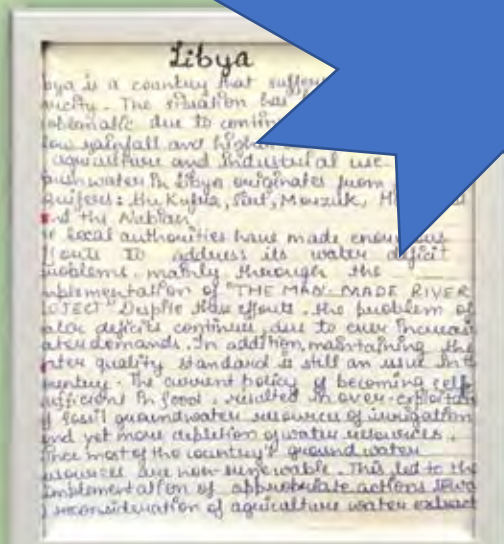 Libya
bya is a country that suffer
rcity. The situation has
oblematic due to contin
low rainfall and higher
agriculture and Industrial use
Freshwater in Libya originates from
quifers: the Kufra, Sirt, Mourzuk, H
and the Nubian
e local authorities have made enormous
fforts to address its water deficit
problems, mainly through the
mplementation of "THE MAN-MADE RIVER
OJECT" Despite these efforts, the problem of
ater deficits continues, due to ever Increasi
ater demands. In addition, maintaining the
ater quality standard is still an in th
ountry. The current policy of becoming self
ufficient in food, resulted in over-exploitati
f fossil groundwater resources of irrigation
and yet more depletion of water resources.
ince most of the country's ground water
esources are now renewable. This led to the
implementation of actions towa
reconsideration of agriculture water extract